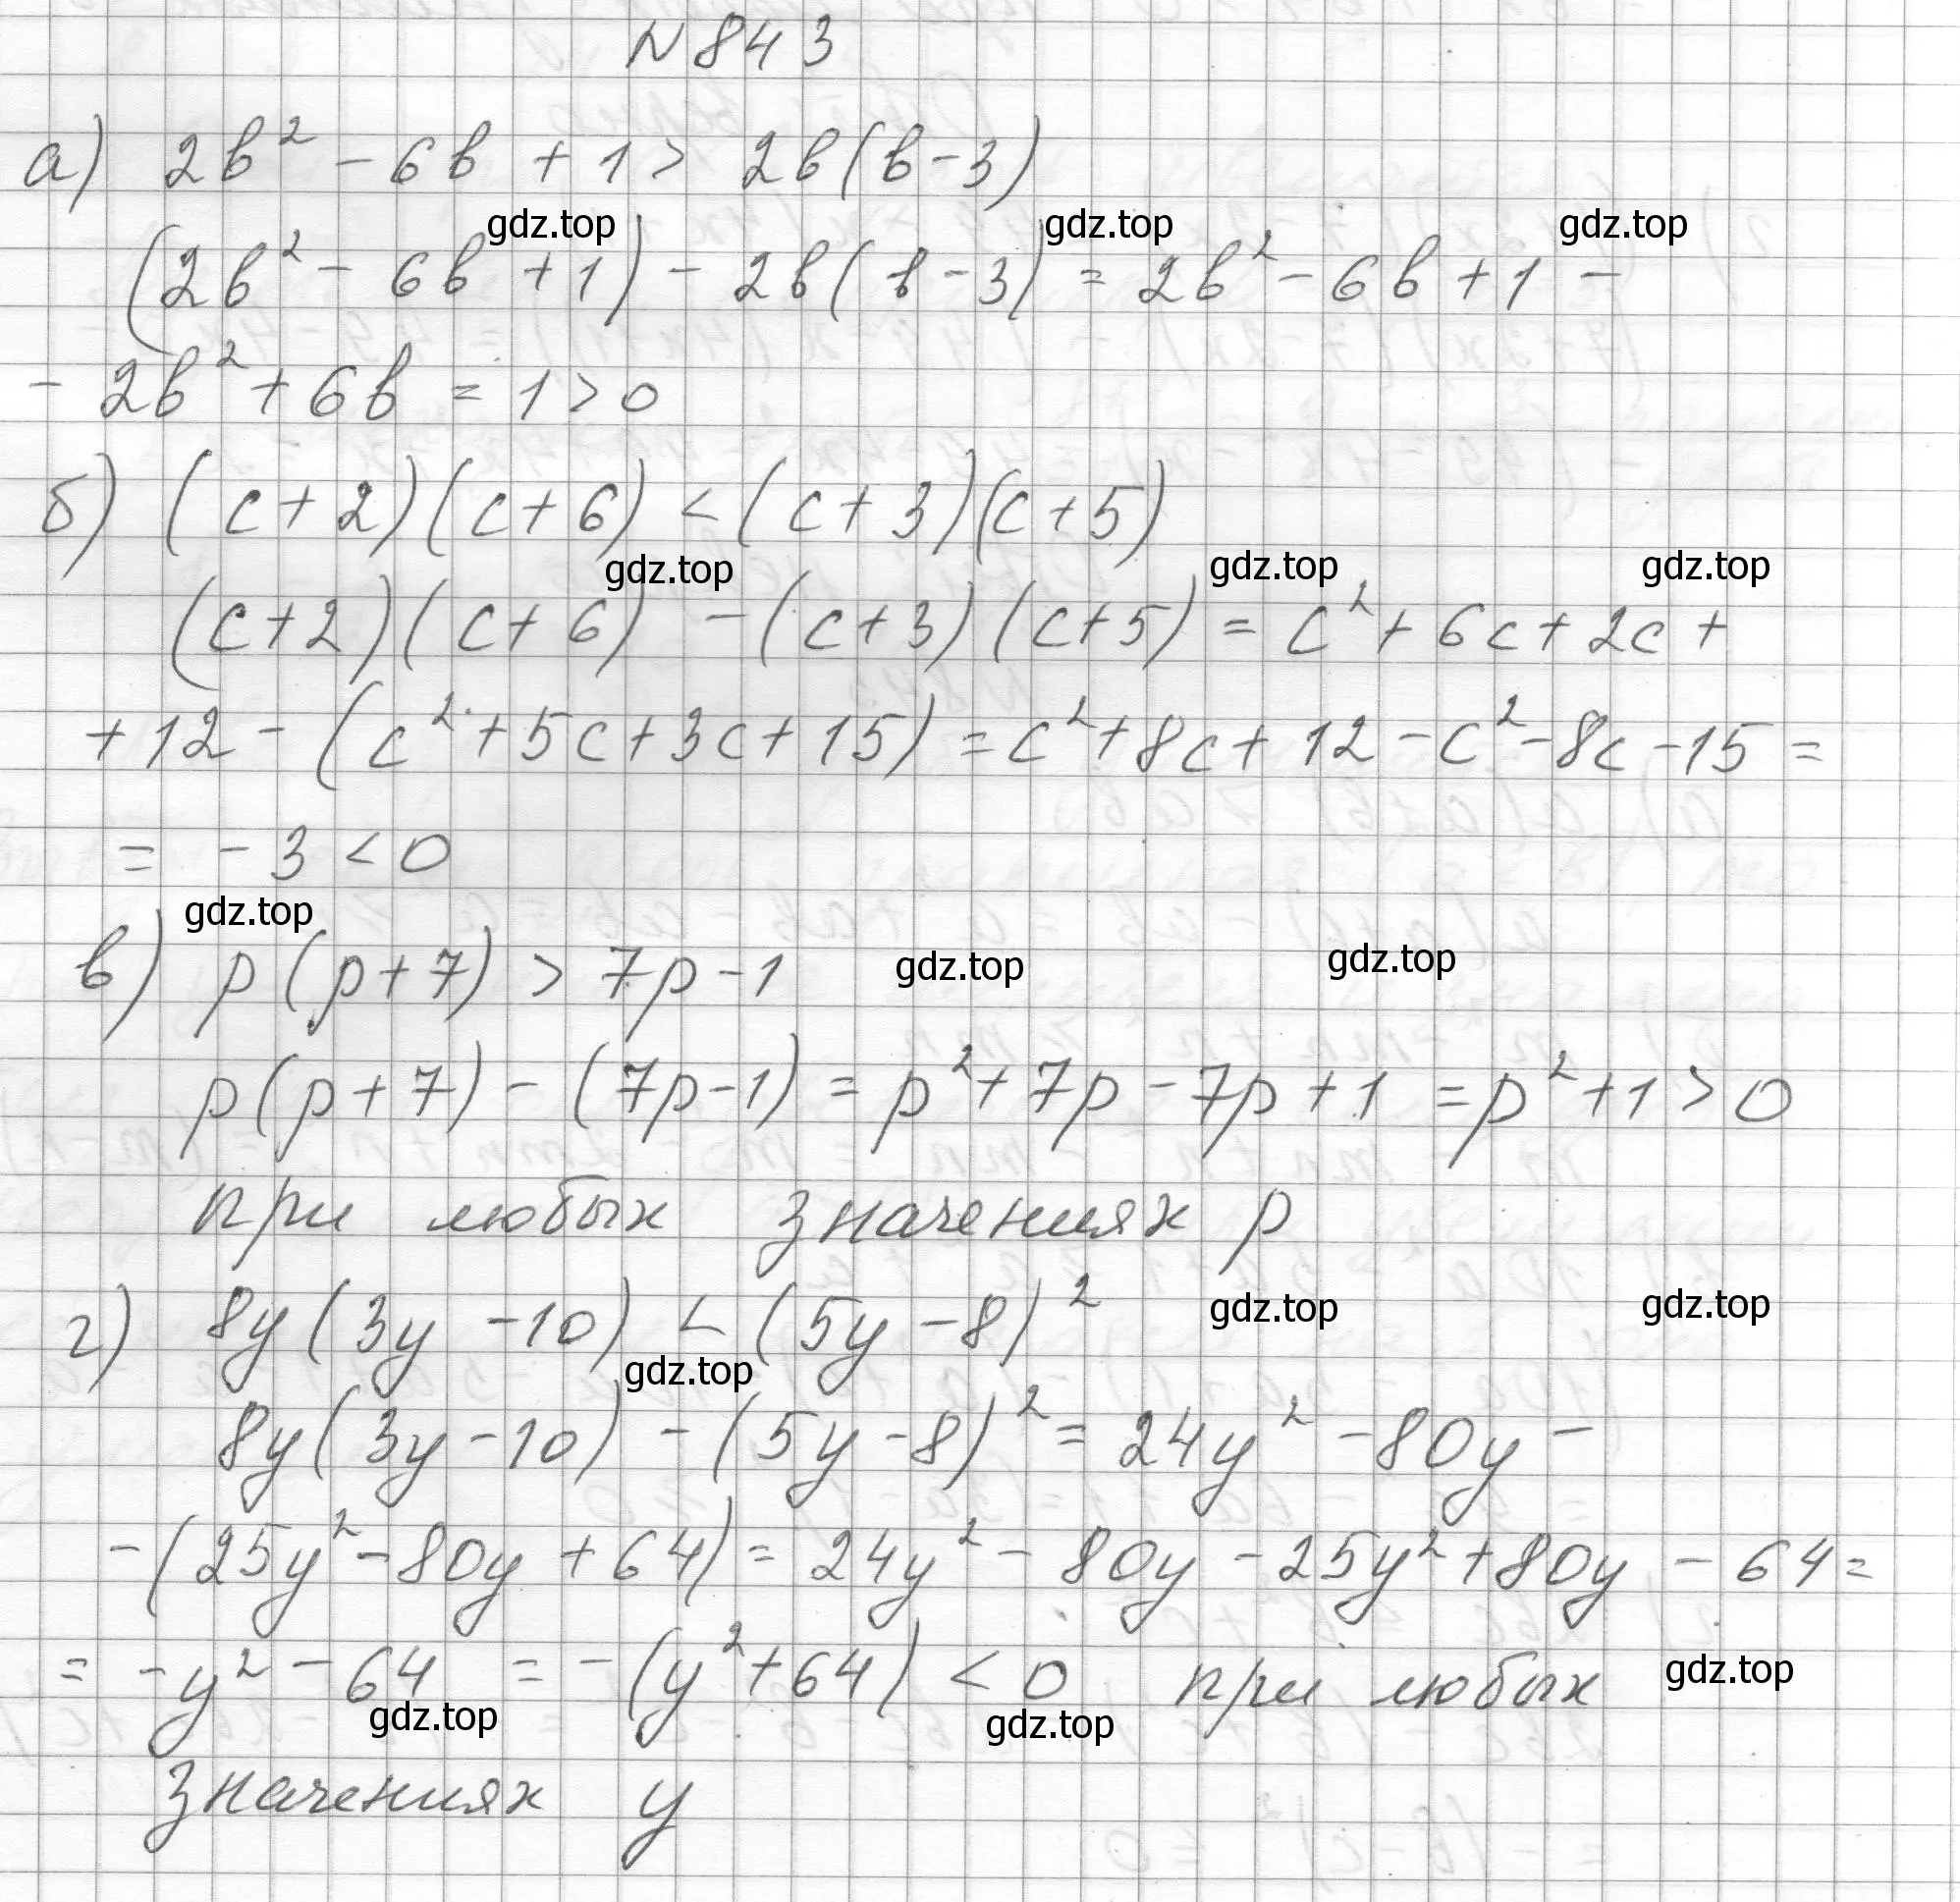 N 843
а) 2b² - 6b + 1 > 2b(b-3)
gdz.top gdz.top gdz.top
(2b² - 6b + 1) - 2b(b-3) = 2b² - 6b + 1 -
- 2b² + 6b = 1 > 0
б) (c+2)(c+6) < (c+3)(c+5)
gdz.top gdz.top gdz.top
(c+2)(c+6) - (c+3)(c+5) = c² + 6c + 2c +
+ 12 - (c² + 5c + 3c + 15) = c² + 8c + 12 - c² - 8c - 15 =
= - 3 < 0
gdz.top
в) p(p+7) > 7p - 1
gdz.top gdz.top
p(p+7) - (7p-1) = p² + 7p - 7p + 1 = p² + 1 > 0
при любых значениях p
г) 8y(3y - 10) < (5y - 8)²
gdz.top gdz.top gdz.top
8y(3y-10) - (5y-8)² = 24y² - 80y -
- (25y² - 80y + 64) = 24y² - 80y - 25y² + 80y - 64 =
= - y² - 64 = - (y² + 64) < 0 при любых
gdz.top gdz.top gdz.top
значениях y